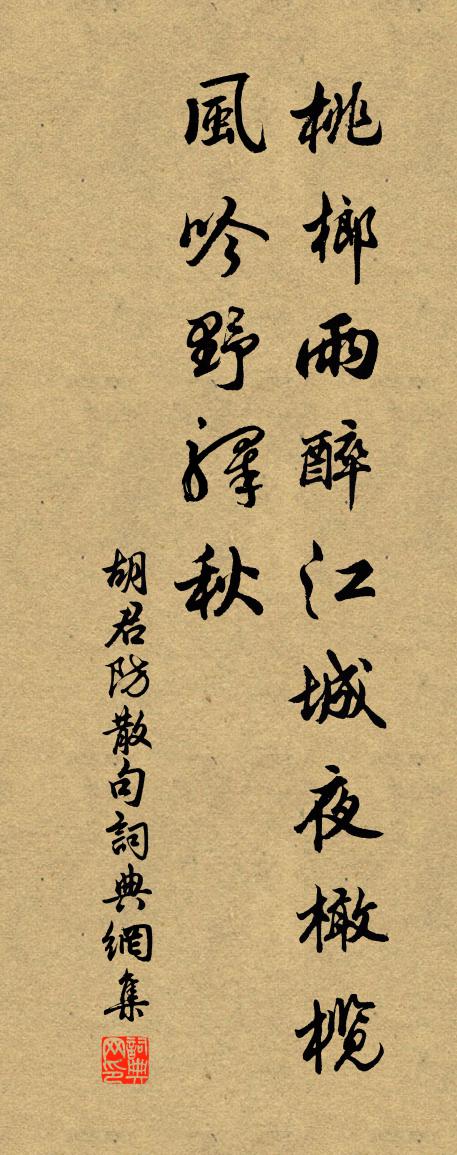 桃榔雨醉江城夜橄榄
風吟野驛秋
胡君防散句詞典網集
詞典
网印